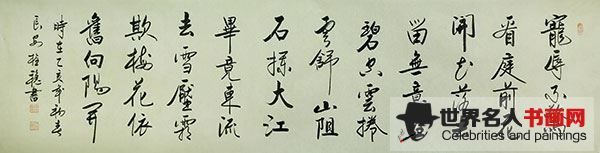 寵辱不驚
看庭前花
開花落
留無意
碧空雲捲
雲舒山阻
石攔大江
畢竟東流
去雪壓霜
欺梅花依
舊向陽開
時在乙亥年初春
長安書
世界名人书画网
Celebrities and paintings